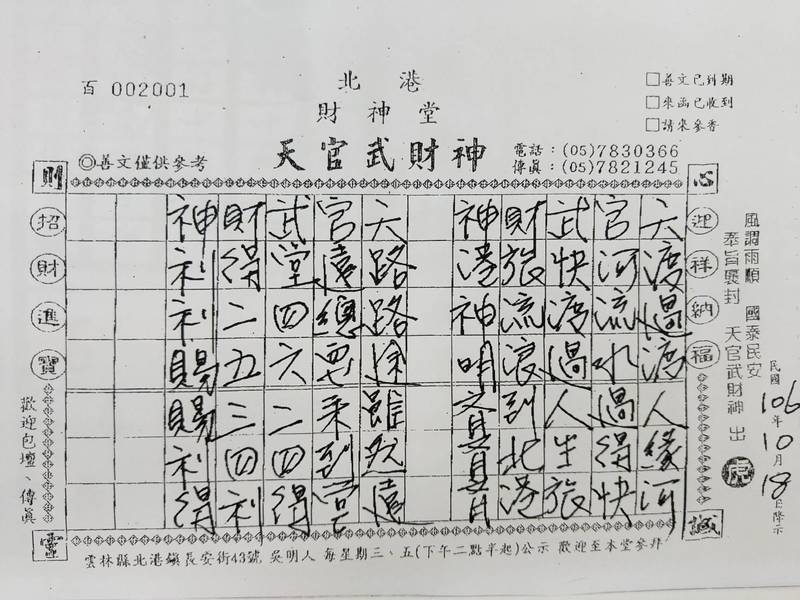 百 002001
北港
財神堂
天官武財神
◎善文僅供參考
電話:(05)7830366
傳真:(05)7821245
□善文已到期
□來函已收到
□請來參香
心
迎祥納福
誠
則
招財進寶
靈
風調雨順 國泰民安
奉旨褒封 天官武財神 出
民國106年10月18日降示
天渡過渡人緣河
官河流水過得快
武快渡過人生旅
財旅流浪到北港
神港神明
天路路途雖然遠
官遠總要來到堂
武堂四六二四得
財得二五三四利
神利利賜賜利得
歡迎包壇、傳真
雲林縣北港鎮長安街43號,吳明人 每星期三、五(下午二點半起)公示 歡迎至本堂參拜